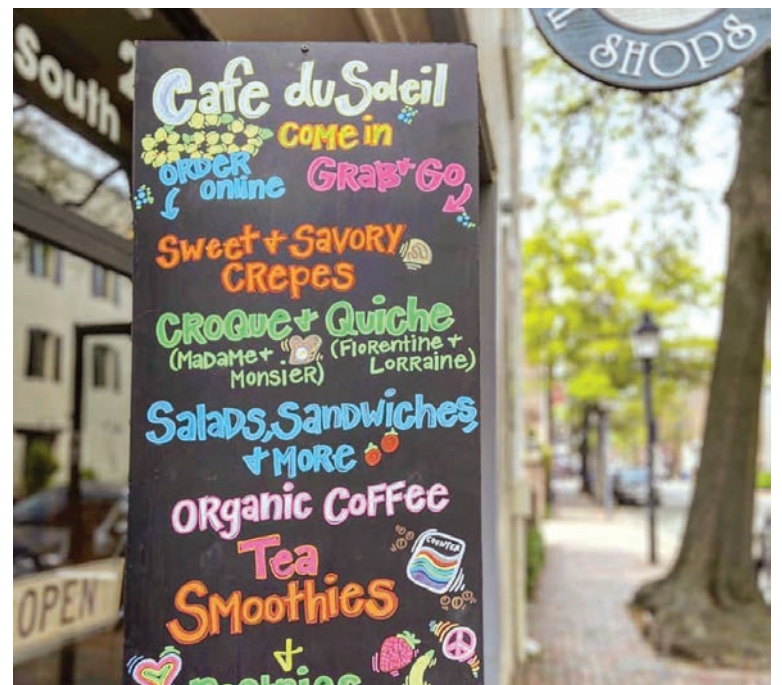 South
SHOPS
Cafe du Soleil
COME in
ORDER online
GRAB + GO
Sweet + Savory
CRepes
CROQUE + Quiche
(MADAMe + Monsier)
(Florentine + Lorraine)
Salads, Sandwiches,
+ MORE
ORganic CoFFee
COUNTER
Tea
SMoothies
+
OPEN